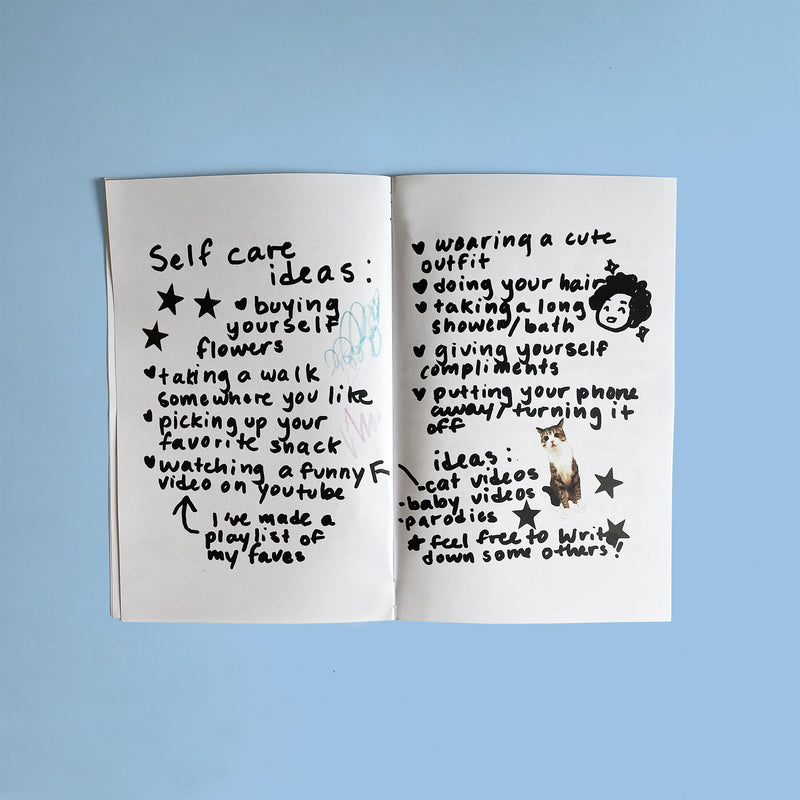 Self care
ideas:
♥ buying
yourself
flowers
♥ taking a walk
somewhere you like
♥ picking up your
favorite snack
♥ watching a funny
video on youtube
I've made a
playlist of
my faves
♥ wearing a cute
outfit
♥ doing your hair
♥ taking a long
shower/bath
♥ giving yourself
compliments
♥ putting your phone
away/turning it
off
ideas:
-cat videos
-baby videos
-parodies
* feel free to write
down some others!